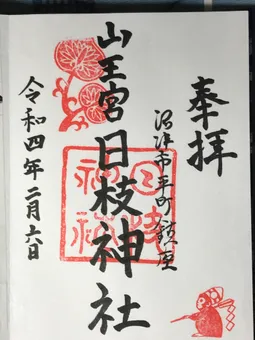 奉拝
沼津市平町鎮座
山王宮日枝神社
日枝神社
令和四年二月六日